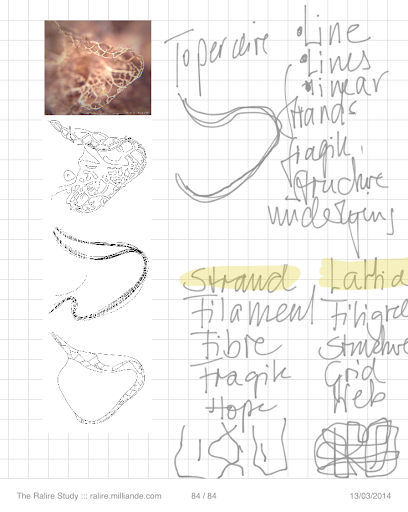 • Line
• Lines
• linear
strands
fragile
Structure
underlying
Strand
Filament
Fibre
Fragile
Hope
Lattic
Filigre
Structure
Grid
Web
The Ralire Study ::: ralire.milliande.com 84 / 84 13/03/2014